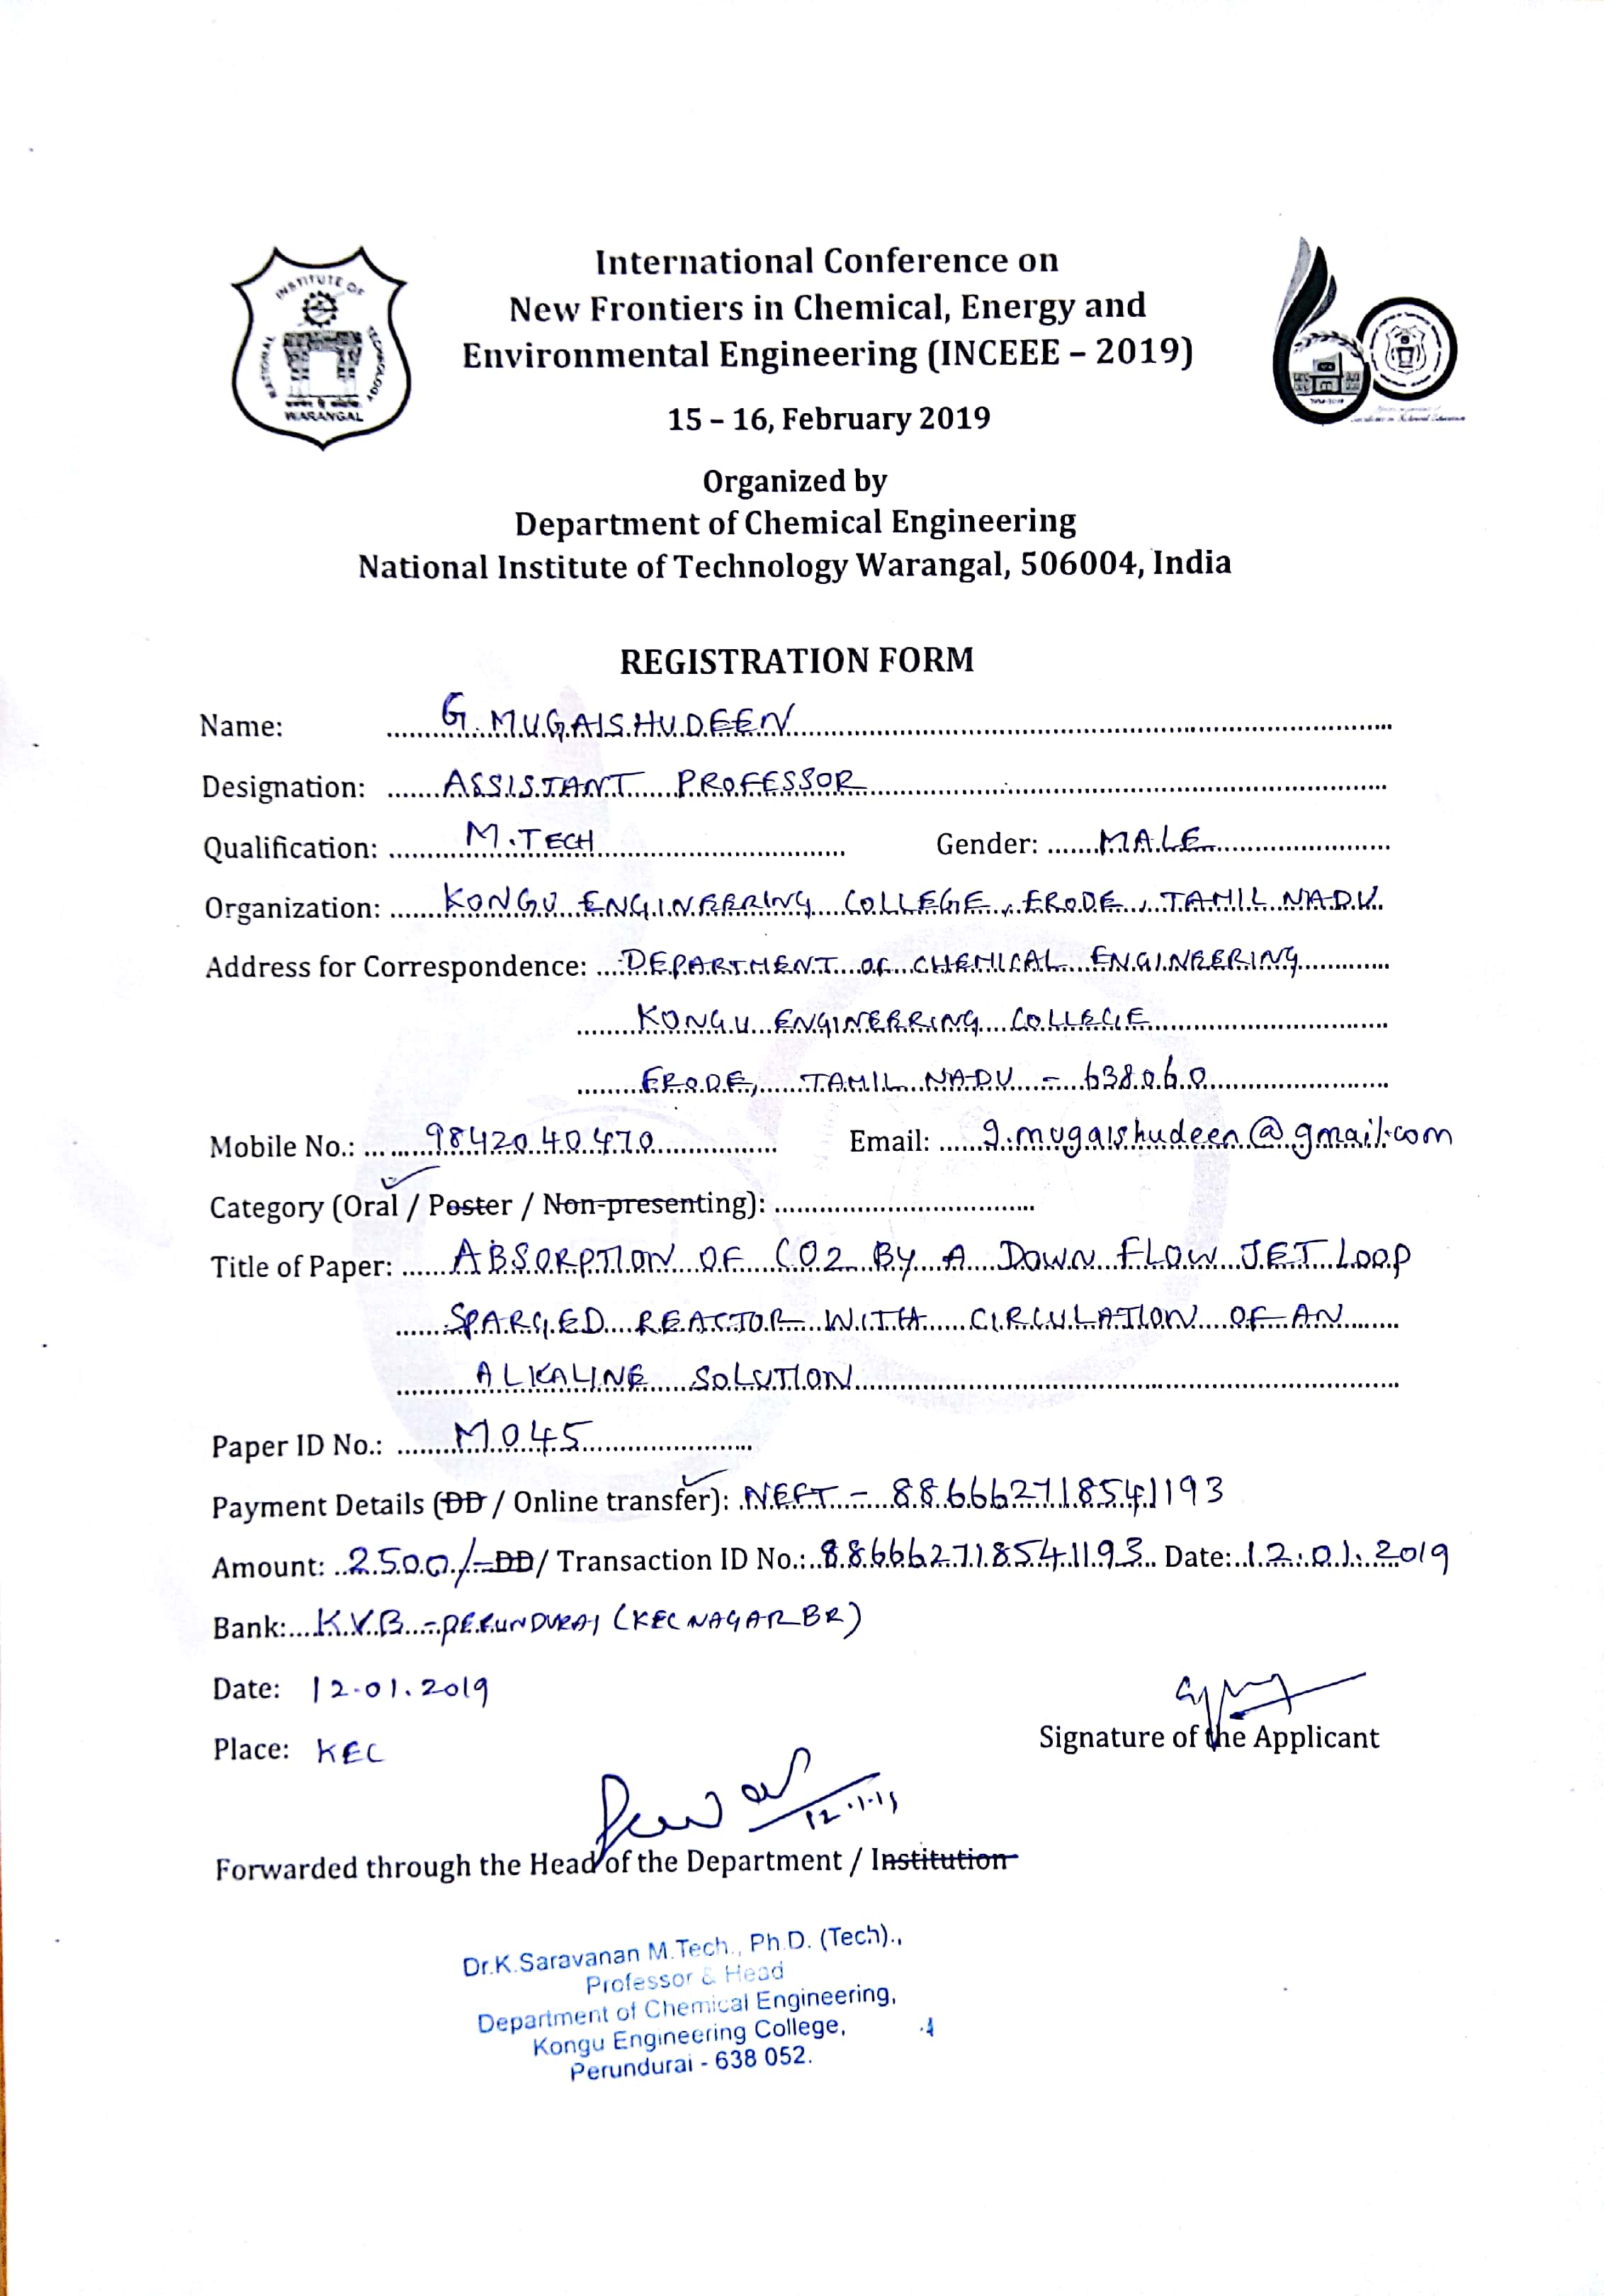 INSTITUTE OF
NATIONAL
TECHNOLOGY
WARANGAL
International Conference on
New Frontiers in Chemical, Energy and
Environmental Engineering (INCEEE – 2019)
15 – 16, February 2019
Organized by
Department of Chemical Engineering
National Institute of Technology Warangal, 506004, India
REGISTRATION FORM
Name: G. MUGAISHUDEEN
Designation: ASSISTANT PROFESSOR
Qualification: M.TECH Gender: MALE
Organization: KONGU ENGINEERING COLLEGE, ERODE, TAMIL NADU.
Address for Correspondence: DEPARTMENT OF CHEMICAL ENGINEERING
KONGU ENGINEERING COLLEGE
ERODE, TAMIL NADU - 638060
Mobile No.: 9842040470 Email: g.mugaishudeen@gmail.com
Category (Oral / Poster / Non-presenting):
Title of Paper: ABSORPTION OF CO2 BY A DOWN FLOW JET LOOP
SPARGED REACTOR WITH CIRCULATION OF AN
ALKALINE SOLUTION
Paper ID No.: M045
Payment Details (DD / Online transfer): NEFT - 886662718541193
Amount: 2500/- DD / Transaction ID No.: 886662718541193 Date: 12.01.2019
Bank: KVB - PERUNDURAI (KEC NAGAR BR)
Date: 12.01.2019
Place: KEC
Signature of the Applicant
12.1.19
Forwarded through the Head of the Department / Institution
Dr.K.Saravanan M.Tech., Ph.D. (Tech).,
Professor & Head
Department of Chemical Engineering,
Kongu Engineering College,
Perundurai - 638 052.